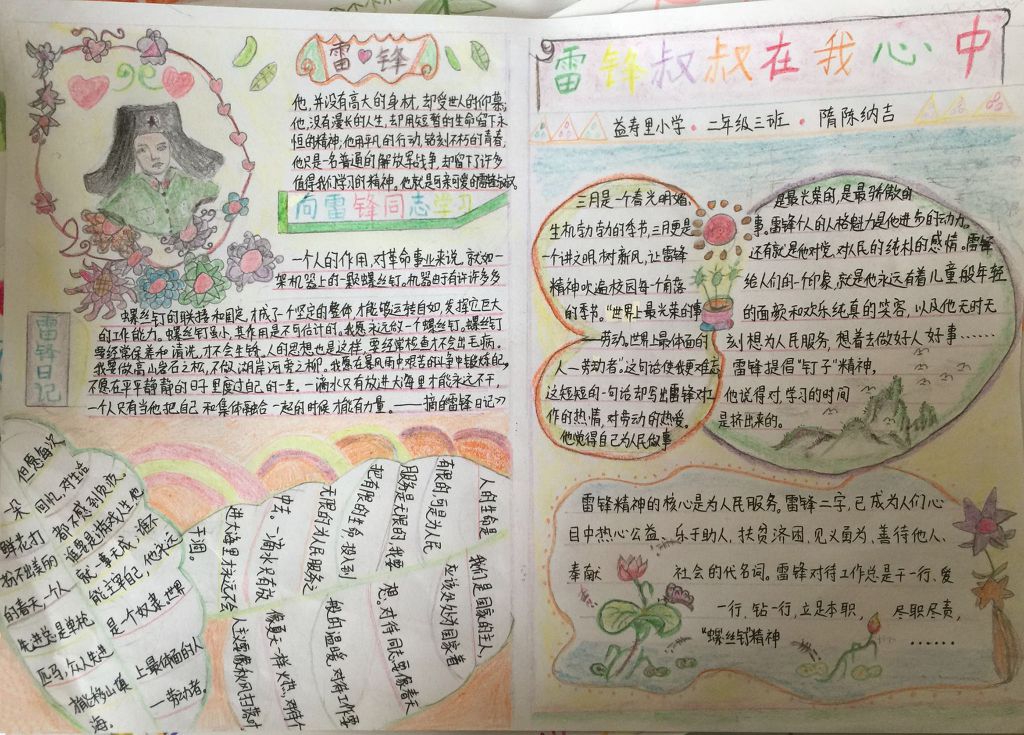 雷锋
他,并没有高大的身材,却受世人的仰慕;
他,没有漫长的人生,却用短暂的生命留下永
恒的精神,他用平凡的行动,铭刻不朽的青春,
他只是一名普通的解放军战争,却留下了许多
值得我们学习的精神。他就是可亲可爱的雷锋叔叔
向雷锋同志学习
一个人的作用,对革命事业来说,就如一
架机器上的一颗螺丝钉。机器由于有许许多多
螺丝钉的联接和固定,才成了一个坚定的整体,才能够运转自如,发挥它巨大
的工作能力。螺丝钉虽小,其作用是不可估计的。我愿永远做一个螺丝钉。螺丝钉
要经常保养和清洗,才不会生锈。人的思想也是这样,要经常检查才不会出毛病。
我要做高山岩石之松,不做湖岸河旁之柳。我愿在暴风雨中艰苦的斗争中锻炼自己,
不愿在平平静静的日子里度过自己的一生。一滴水只有放进大海里才能永远不干,
一个人只有当他把自己和集体融合一起的时候才能有力量。——摘自雷锋日记》
雷锋日记
但愿每次
回忆,对生活
都不感到负疚。
一朵
鲜花打
扮不出美丽
的春天,个人
先进总是单枪
匹马,众人先进
才能移山填
海。
谁要是游戏人生,他
就一事无成;谁不
能主宰自己,他永远
是一个奴隶,世界
上最体面的人
—劳动者。
人的生命是
有限的,可是为人民
服务是无限的,我要
把有限的生命,投入到
无限的为人民服务之
中去。一滴水只有放
进大海里才永远不会
干涸。
我们是国家的主人,
应该处处为国家着
想。对待同志要像春天
般的温暖,对待工作要
像夏天一样火热,对待个
人主义要像秋风扫落叶。
雷锋叔叔在我心中
益寿里小学·二年级三班·隋陈纳吉
三月是一个春光明媚、
生机勃勃的季节,三月更是
一个讲文明、树新风,让雷锋
精神吹遍校园每个角落
的季节。“世界上最光荣的事
——劳动。世界上最体面的
人—劳动者。”这句话使我更难忘
这短短的一句话却写出雷锋对工
作的热情,对劳动的热爱。
他觉得自己为人民做事
是最光荣的,是最骄傲的
事。雷锋个人的人格魅力是他进步的动力。
还有就是他对党、对人民的纯朴的感情。雷锋
给人们的一个印象,就是他永远有着儿童般年轻
的面貌和欢乐纯真的笑容,以及他无时无
刻想为人民服务,想着去做好人好事……
雷锋提倡“钉子”精神,
他说得对,学习的时间
是挤出来的。
雷锋精神的核心是为人民服务。雷锋二字,已成为人们心
目中热心公益、乐于助人、扶贫济困、见义勇为、善待他人、
奉献社会的代名词。雷锋对待工作总是干一行、爱
一行、钻一行,立足本职,尽职尽责,
“螺丝钉”精神……